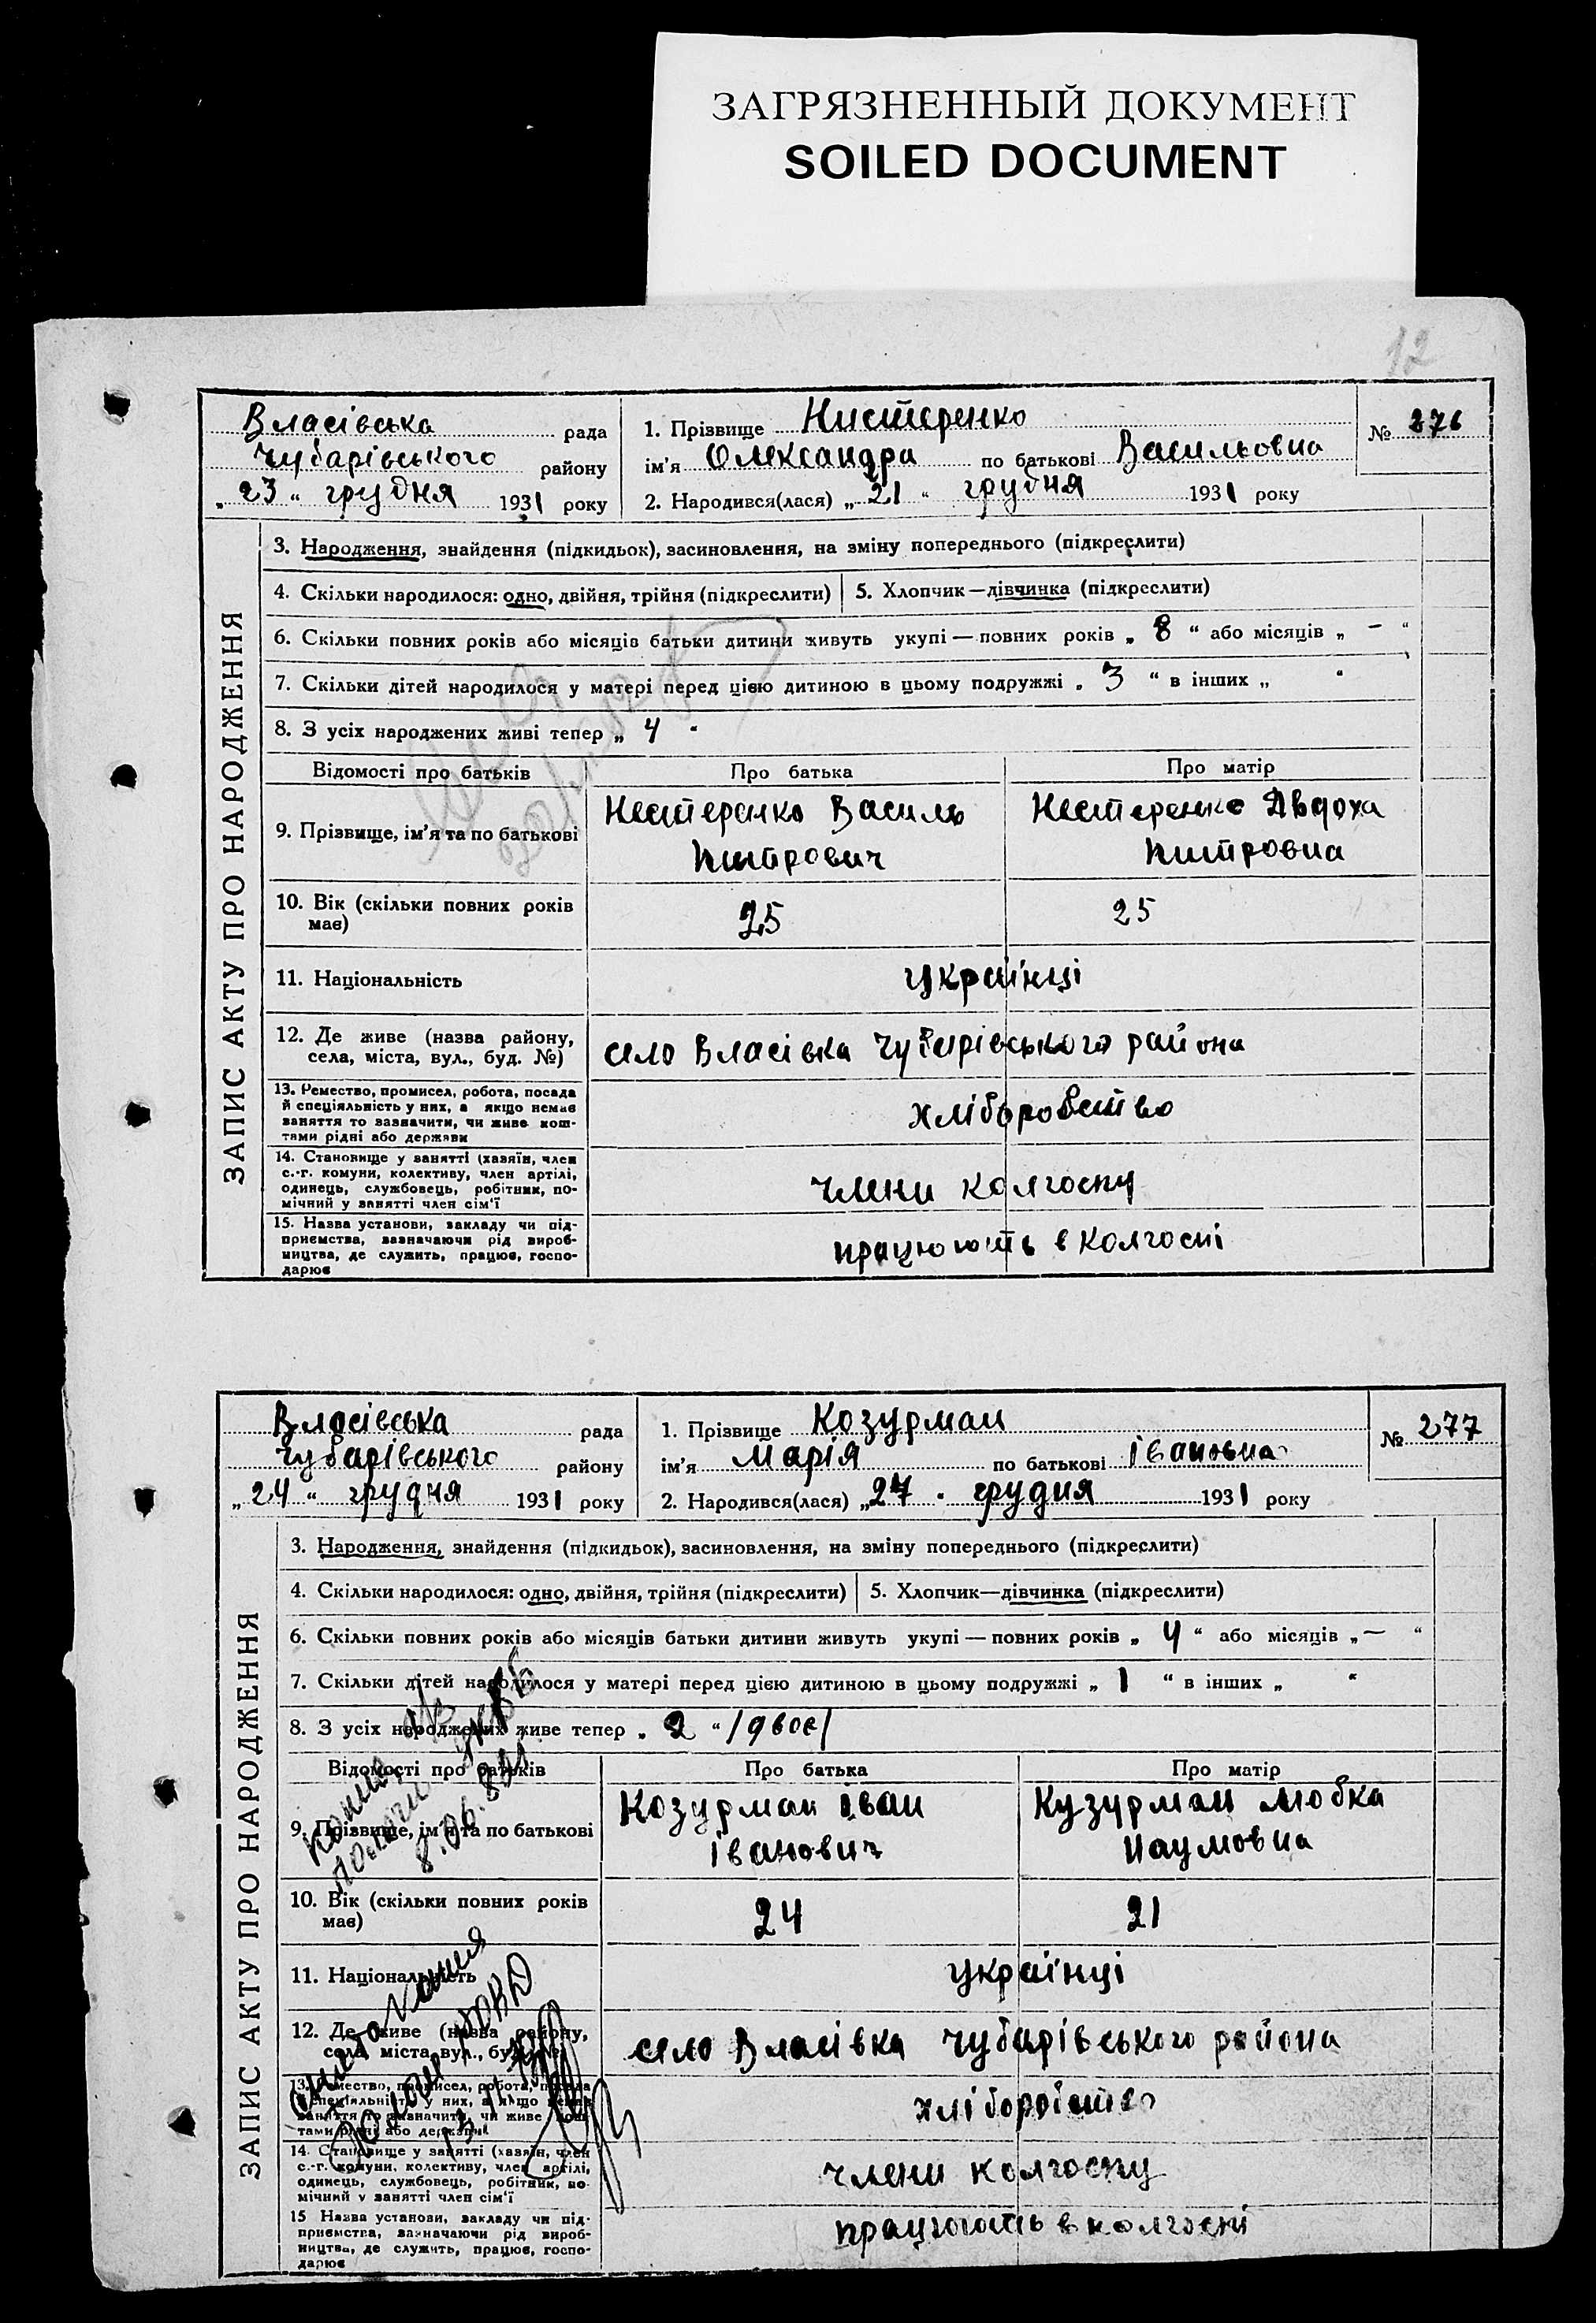 ЗАГРЯЗНЕННЫЙ ДОКУМЕНТ
SOILED DOCUMENT
12
Власівська рада
Чубарівського району
„ 23 “ грудня 1931 року
1. Прізвище Нистеренко
ім'я Олександра по батькові Васильовна
2. Народився(лася) „ 21 “ грудня 1931 року
№ 276
ЗАПИС АКТУ ПРО НАРОДЖЕННЯ
3. Народження, знайдення (підкидьок), засиновлення, на зміну попереднього (підкреслити)
4. Скільки народилося: одно, двійня, трійня (підкреслити) 5. Хлопчик—дівчинка (підкреслити)
6. Скільки повних років або місяців батьки дитини живуть укупі — повних років „ 8 “ або місяців „ — “
7. Скільки дітей народилося у матері перед цією дитиною в цьому подружжі „ 3 “ в інших „ “
8. З усіх народжених живі тепер „ 4 “
Відомості про батьків Про батька Про матір
9. Прізвище, ім'я та по батькові
Нестеренко Василь
Нестеренко Авдоха
10. Вік (скільки повних років має) 25 25
11. Національність українці
12. Де живе (назва району, села, міста, вул., буд. №) село Власівка Чубарівського района
13. Ремество, промисел, робота, посада
й спеціяльність у них, а якщо немає
заняття то зазначити, чи живе кош-
тами рідні або держави
хліборобство
14. Становище у занятті (хазяїн, член
с.-г. комуни, колективу, член артілі,
одинець, службовець, робітник, по-
мічний у занятті член сім'ї
члени колгоспу
15. Назва установи, закладу чи під-
приємства, зазначаючи рід вироб-
ництва, де служить, працює, госпо-
дарює
працюють в колгоспі
Власівська рада
Чубарівського району
„ 24 “ грудня 1931 року
1. Прізвище Козурман
ім'я Марія по батькові Івановна
2. Народився(лася) „ “ грудня 1931 року
№ 277
ЗАПИС АКТУ ПРО НАРОДЖЕННЯ
3. Народження, знайдення (підкидьок), засиновлення, на зміну попереднього (підкреслити)
4. Скільки народилося: одно, двійня, трійня (підкреслити) 5. Хлопчик—дівчинка (підкреслити)
6. Скільки повних років або місяців батьки дитини живуть укупі — повних років „ 4 “ або місяців „ — “
7. Скільки дітей народилося у матері перед цією дитиною в цьому подружжі „ 1 “ в інших „ “
8. З усіх народжених живе тепер „ 2 “ /двоє/
Відомості про батьків Про батька Про матір
9. Прізвище, ім'я та по батькові
Козурман Іван
Іванович
Кузурман Любка
Наумовна
10. Вік (скільки повних років має) 24 21
11. Національність українці
12. Де живе (назва району, села, міста, вул., буд. №) село Власівка Чубарівського района
13. Ремество, промисел, робота, посада
й спеціяльність у них, а якщо немає
заняття то зазначити, чи живе кош-
тами рідні або держави
хліборобство
14. Становище у занятті (хазяїн, член
с.-г. комуни, колективу, член артілі,
одинець, службовець, робітник, по-
мічний у занятті член сім'ї
члени колгоспу
15 Назва установи, закладу чи під-
приємства, зазначаючи рід вироб-
ництва, де служить, працює, госпо-
дарює
працюють в колгоспі